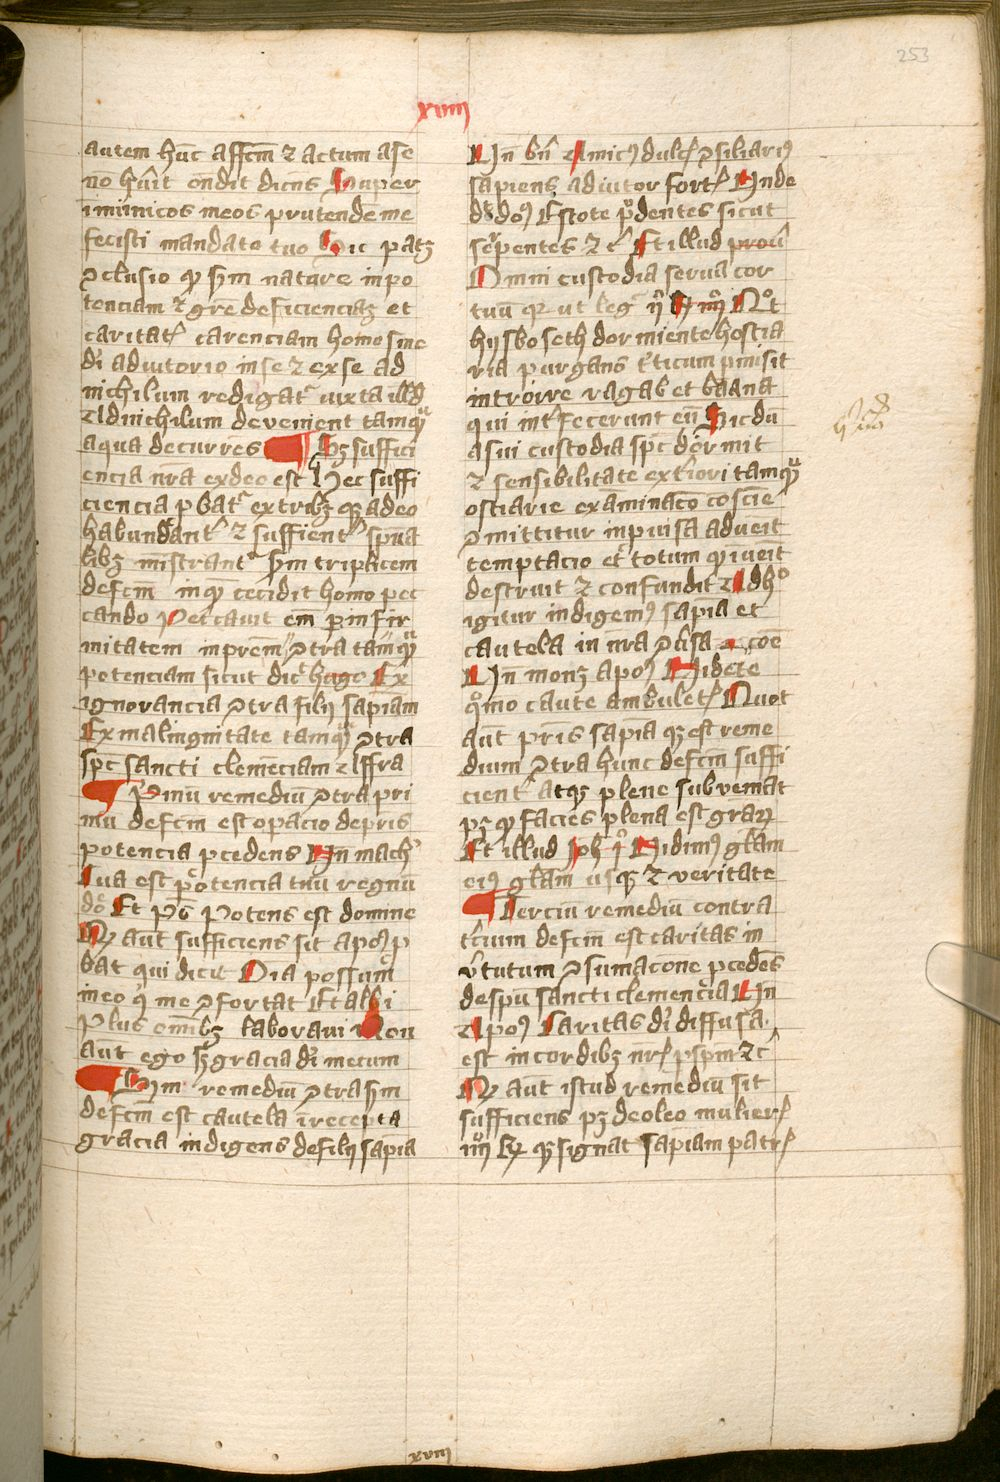 253
xviiij
autem hūc affcm̄ ⁊ actum a se
no hūit ondit dicn̄s Super
inimicos meos prutendē me
fecisti mandato tuo Hic patꝫ
ꝯclusio ꝙ scd̄m nature inpo
tenciam ⁊ gr̄e deficienciaꝫ et
caritat̉ carenciam homo sine
dī adiutorio in se ⁊ ex se ad
nichilum redigat᷑ iuxta illd̄
Ad nichilum devenient tamqͣ
aqua decurrēs Sꝫ suffici
encia nr̄a ex deo est Hec suffi
ciencia ꝓbat᷑ ex tribꝫ qꝫ a deo
habundant̉ ⁊ sufficient̉ spūa
libꝫ ministrant᷑ scd̄m triplicem
defcm̄ in quē cecidit homo pec
cando Peccauit em̄ ꝑ infir
mitatem inprem̄ ꝯtra tamqͣ
potenciam sicut dic̄ hugo Ex
ignorancia ꝯtra filij sapiam̄
Ex malingnitate tamqͣ ꝯtra
spc̄ sancti clemēciam Assra
Pⁱmū remediū ꝯtra pri
mū defcm̄ est opacio de pr̄is
potencia ꝓcedens Vn̄ mach̉
Tua est potencia tuū regnū
do᷑ Et pō Potens est domine
Ꝙ aut̄ sufficiens sit apos̉ ꝓ
bat qui dicit Oīa possum
in eo qⁱ me ꝯfortat Et alibi
Plus omībꝫ laboravi Non
aut̄ ego sꝫ gracia dī mecum
Scd̄m remediū ꝯtra scd̄m
defcm̄ est cautela ī recepta
gracia indigens de filij sapia
Vn̄ bn̄ Amicꝰ dulc̉ ꝯsiliariꝰ
sapiens adiutor fort̉ Vnde
dꝫ dos̉ Estote pͥdentes sicut
sepentes ⁊ c̉ Et illud prou̅
Omni custodia serua cor
tuū qꝛ ut leg᷑ ij R iiij Not
hijsboseth dormiente hostia
ria purgans t᷑ticum ꝑmisit
introire ragab et baana
qui int̉fecerunt eū Sic dū
a sui custodia spc̄ dormit
⁊ sensibilitate ext̉iori tamqͣ
ostiarie examinaco᷑ coscīe
ꝯmittitur inpuisa adueīt
temptacio et᷑ totum ꝙ iueīt
destruit ⁊ confundit Ad hͦ
igitur indigemꝰ sapīa et
cautela in nr̄a ꝯūsa coē
Vn̄ monꝫ apos̉ Videte
qͦmo caute ambulet̉ Quot
aut̄ pr̄is sapīa qꝫ est reme
dium ꝯtra hunc defcm̄ suffi
cient̉ atqꝫ plene subveniat
pꝫ ꝙ facies plena est grāꝝ
Et illud Joh̄ iͦ Vidimꝰ glām
eiꝰ glām usqꝫ ⁊ veritate
Terciū remediū contra
t̉cium defcm̄ est caritas in
v̉tutum ꝯsumacone ꝓcedēs
de spū sancti clemencia Vn̄
Apos̉ Caritas dī diffusa
est in cordibꝫ nr̄̉ ꝑ spm̄ ⁊c̉
Ꝙ aut̄ istud remediū sit
sufficiens pꝫ de oleo mulier̉
iiij R̄ ꝙ signat sapiam̄ patr̉
xviiij